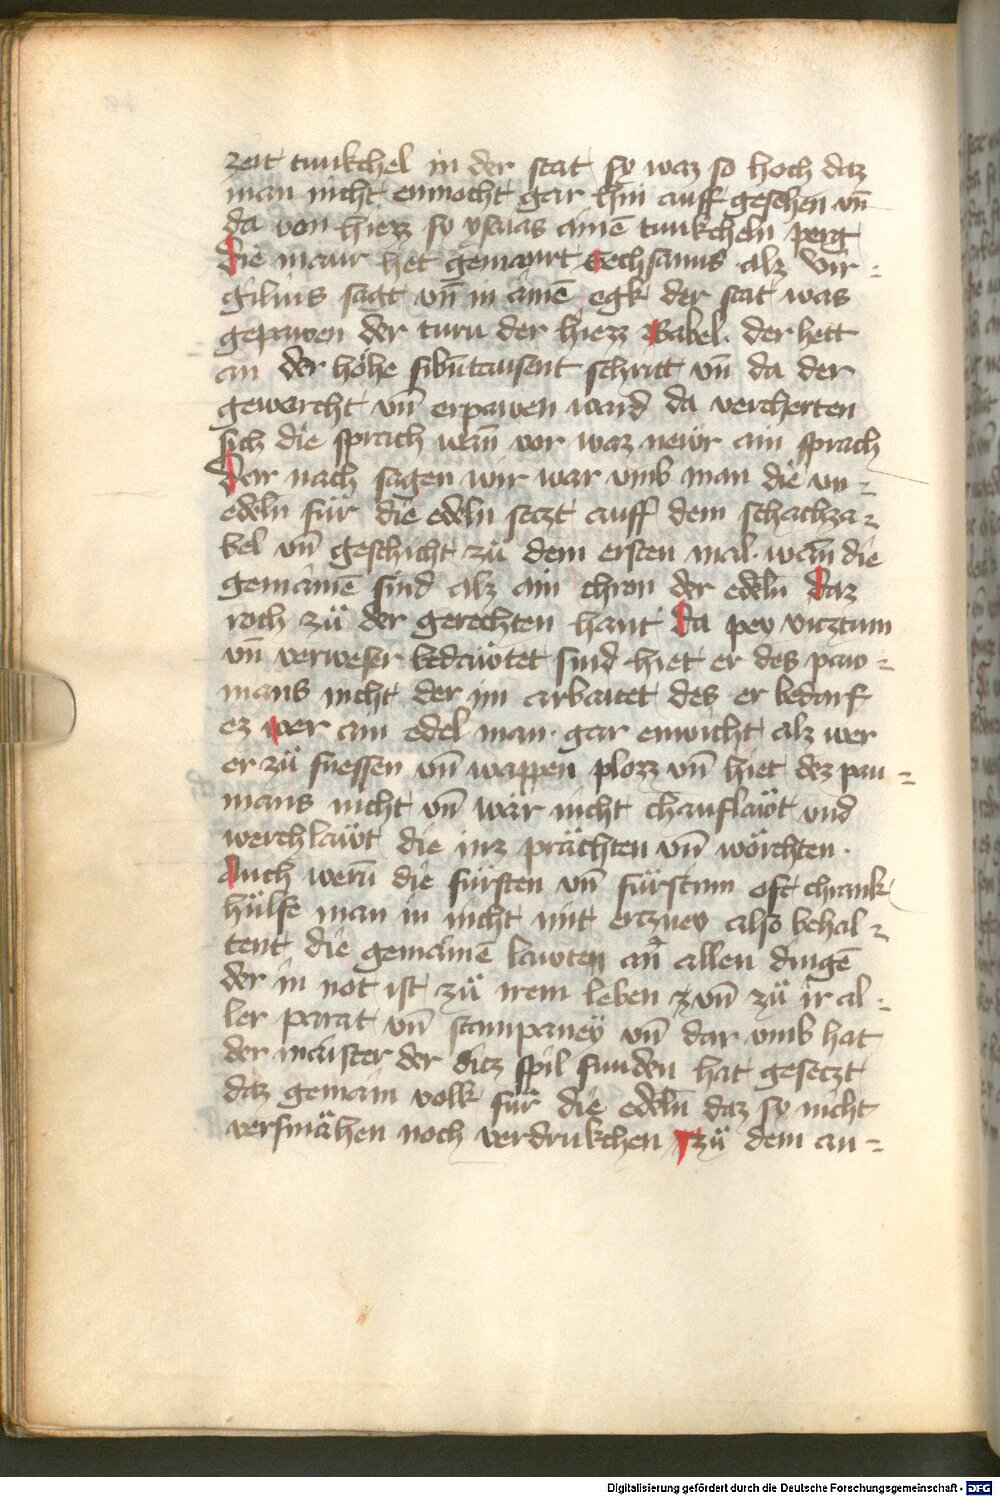 zeit tunkchel in der stat sy waz so hoch daz
man nicht enmocht gar hin auff gesehen vn̄
da von hiezz sy ysaias ainē tunkcheln perg
Die maur het gemaurt Sechsamis alz vir¬
gilius sagt vn̄ in ainē egk der stat was
gepawen der turn der hiezz Babel der hett
an der höhe sibūtausent schritt vn̄ da der
geworcht vn̄ erpawen ward da vercherten
sich die sprach wan̄ vor waz newr ain sprach
Dar nach sagen wir war vmb man die vn¬
edeln für die edeln seczt auff dem schachza¬
bel vn̄ geschicht zů dem ersten mal wan̄ die
gemainē sind alz ain chron der edeln daz
roch zů der gerechten hant da pey vicztum
vn̄ verweser bedäwtet sind hiet er des paw¬
mans nicht der im arbaitet des er bedarf
ez wer ain edel man gar enwicht alz wer
er zů fuessen vn̄ wappen plozz vn̄ hiet dez pau¬
mans nicht vn̄ wär nicht chauflawt vnd
werchläwt die inz prächten vn̄ wörchten
Auch wern̄ die fürsten vn̄ fürstinn oft chrank
hülfe man in nicht mit erczney also behal¬
tent die gemainē lawten an̄ allen dingē
der in not ist zů irem leben vn̄ zů ir al¬
ler parat vn̄ stampaney vn̄ dar vmb hat
der maister der ditz spil funden hat geseczt
daz gemain volk für die edeln daz sy nicht
versmähen noch verdrukchen zů dem an¬
Digitalisierung gefördert durch die Deutsche Forschungsgemeinschaft - DFG